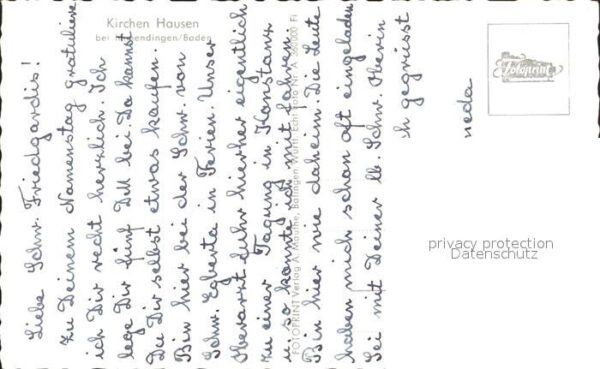 Kirchen Hausen
bei Hattendingen/Baden
Liebe Schw. Friedgardis!
Zu Deinem Namenstag gratuliere
ich Dir recht herzlich. Ich
lege Dir fünf DM bei. Da kannst
Du Dir selbst etwas kaufen.
Bin hier bei der Schw. von
Schw. Egberta in Ferien. Unser
Oberarzt fuhr hierher eigentlich
zu einer Tagung in Konstanz
u. so konnte ich mit fahren.
Bin hier wie daheim. Die Leute
haben mich schon oft eingeladen
Sei mit Deiner lb. Schw. Oberin
h gegrüsst
neda
FOTOPRINT Verlag A. Mauthe, Balingen Württ. Echt Foto Nr. A
Fotoprint
privacy protection
Datenschutz